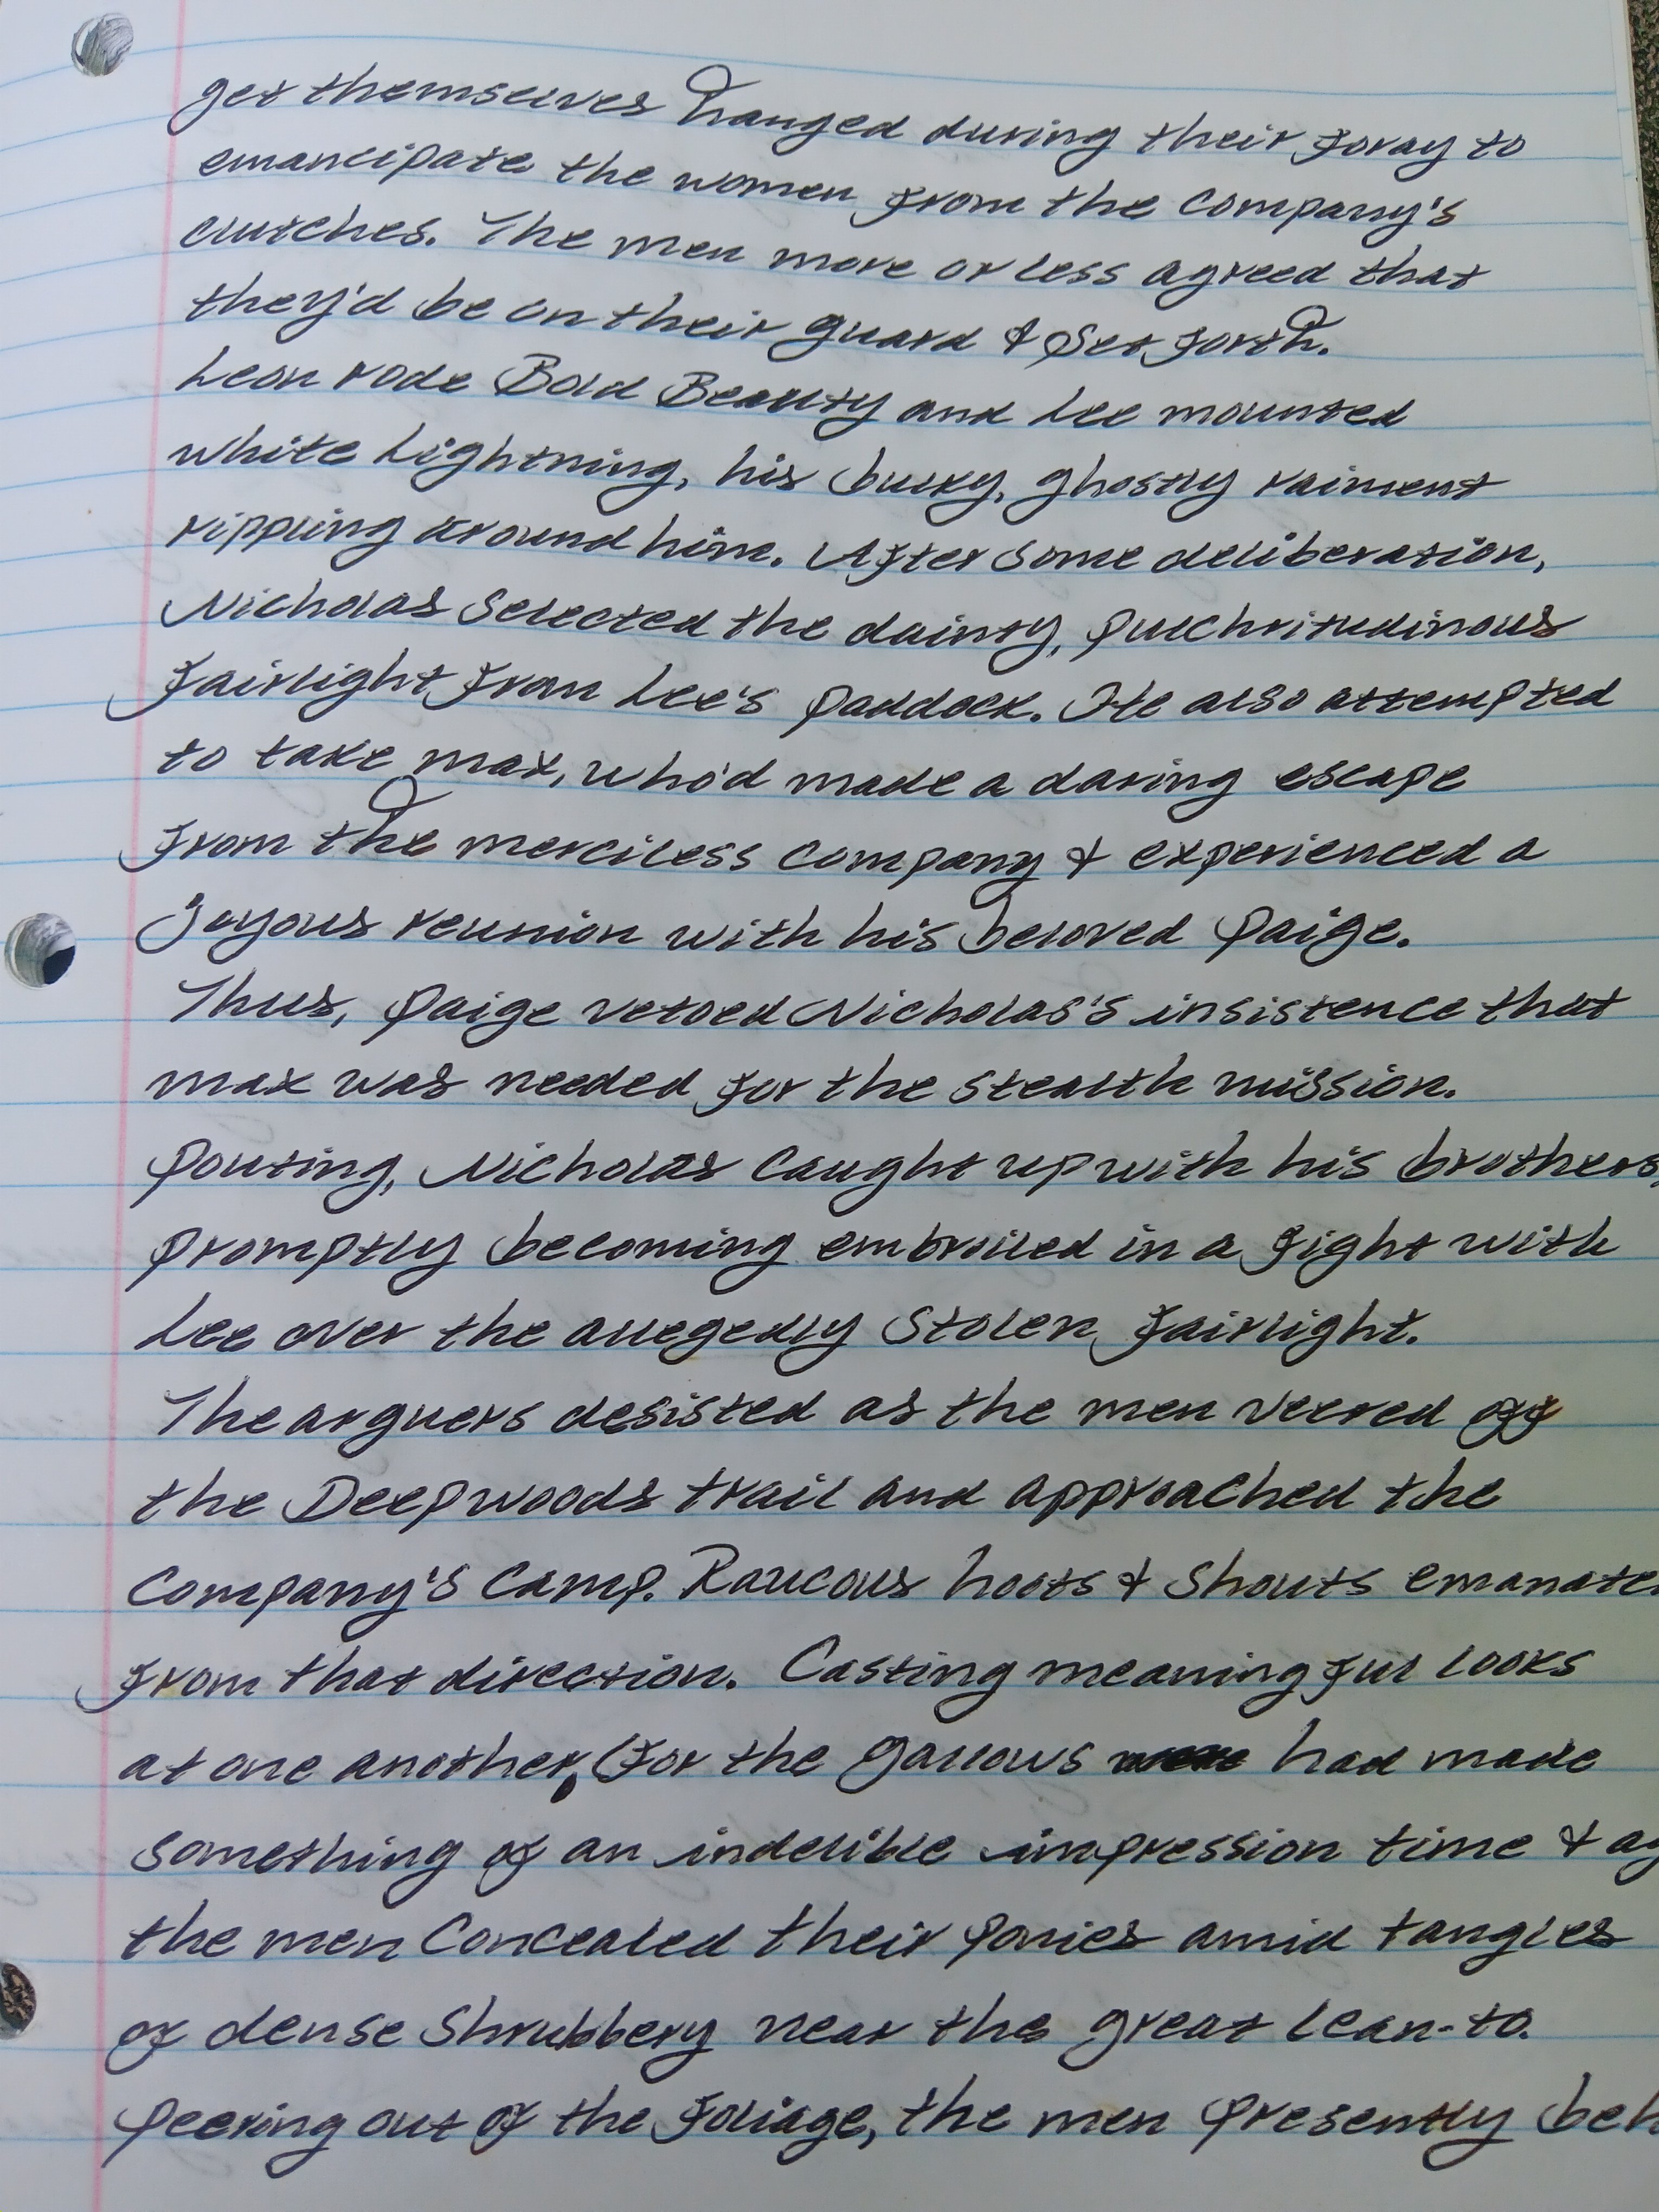 get themselves hanged during their foray to
emancipate the women from the Company's
clutches. The men more or less agreed that
they'd be on their guard & set forth.
Leon rode Bold Beauty and Lee mounted
White Lightning, his bulky, ghostly raiment
rippling around him. After some deliberation,
Nicholas selected the dainty, pulchritudinous
Fairlight from Lee's paddock. He also attempted
to take Max, who'd made a daring escape
from the merciless Company & experienced a
joyous reunion with his beloved Paige.
Thus, Paige vetoed Nicholas's insistence that
Max was needed for the stealth mission.
Pouting, Nicholas caught up with his brothers,
promptly becoming embroiled in a fight with
Lee over the allegedly stolen Fairlight.
The arguers desisted as the men veered off
the Deepwoods trail and approached the
Company's camp. Raucous hoots & shouts emanate
from that direction. Casting meaningful looks
at one another, (for the gallows had made
something of an indelible impression time & ag
the men concealed their ponies amid tangles
of dense shrubbery near the great lean-to.
Peering out of the foliage, the men presently beh